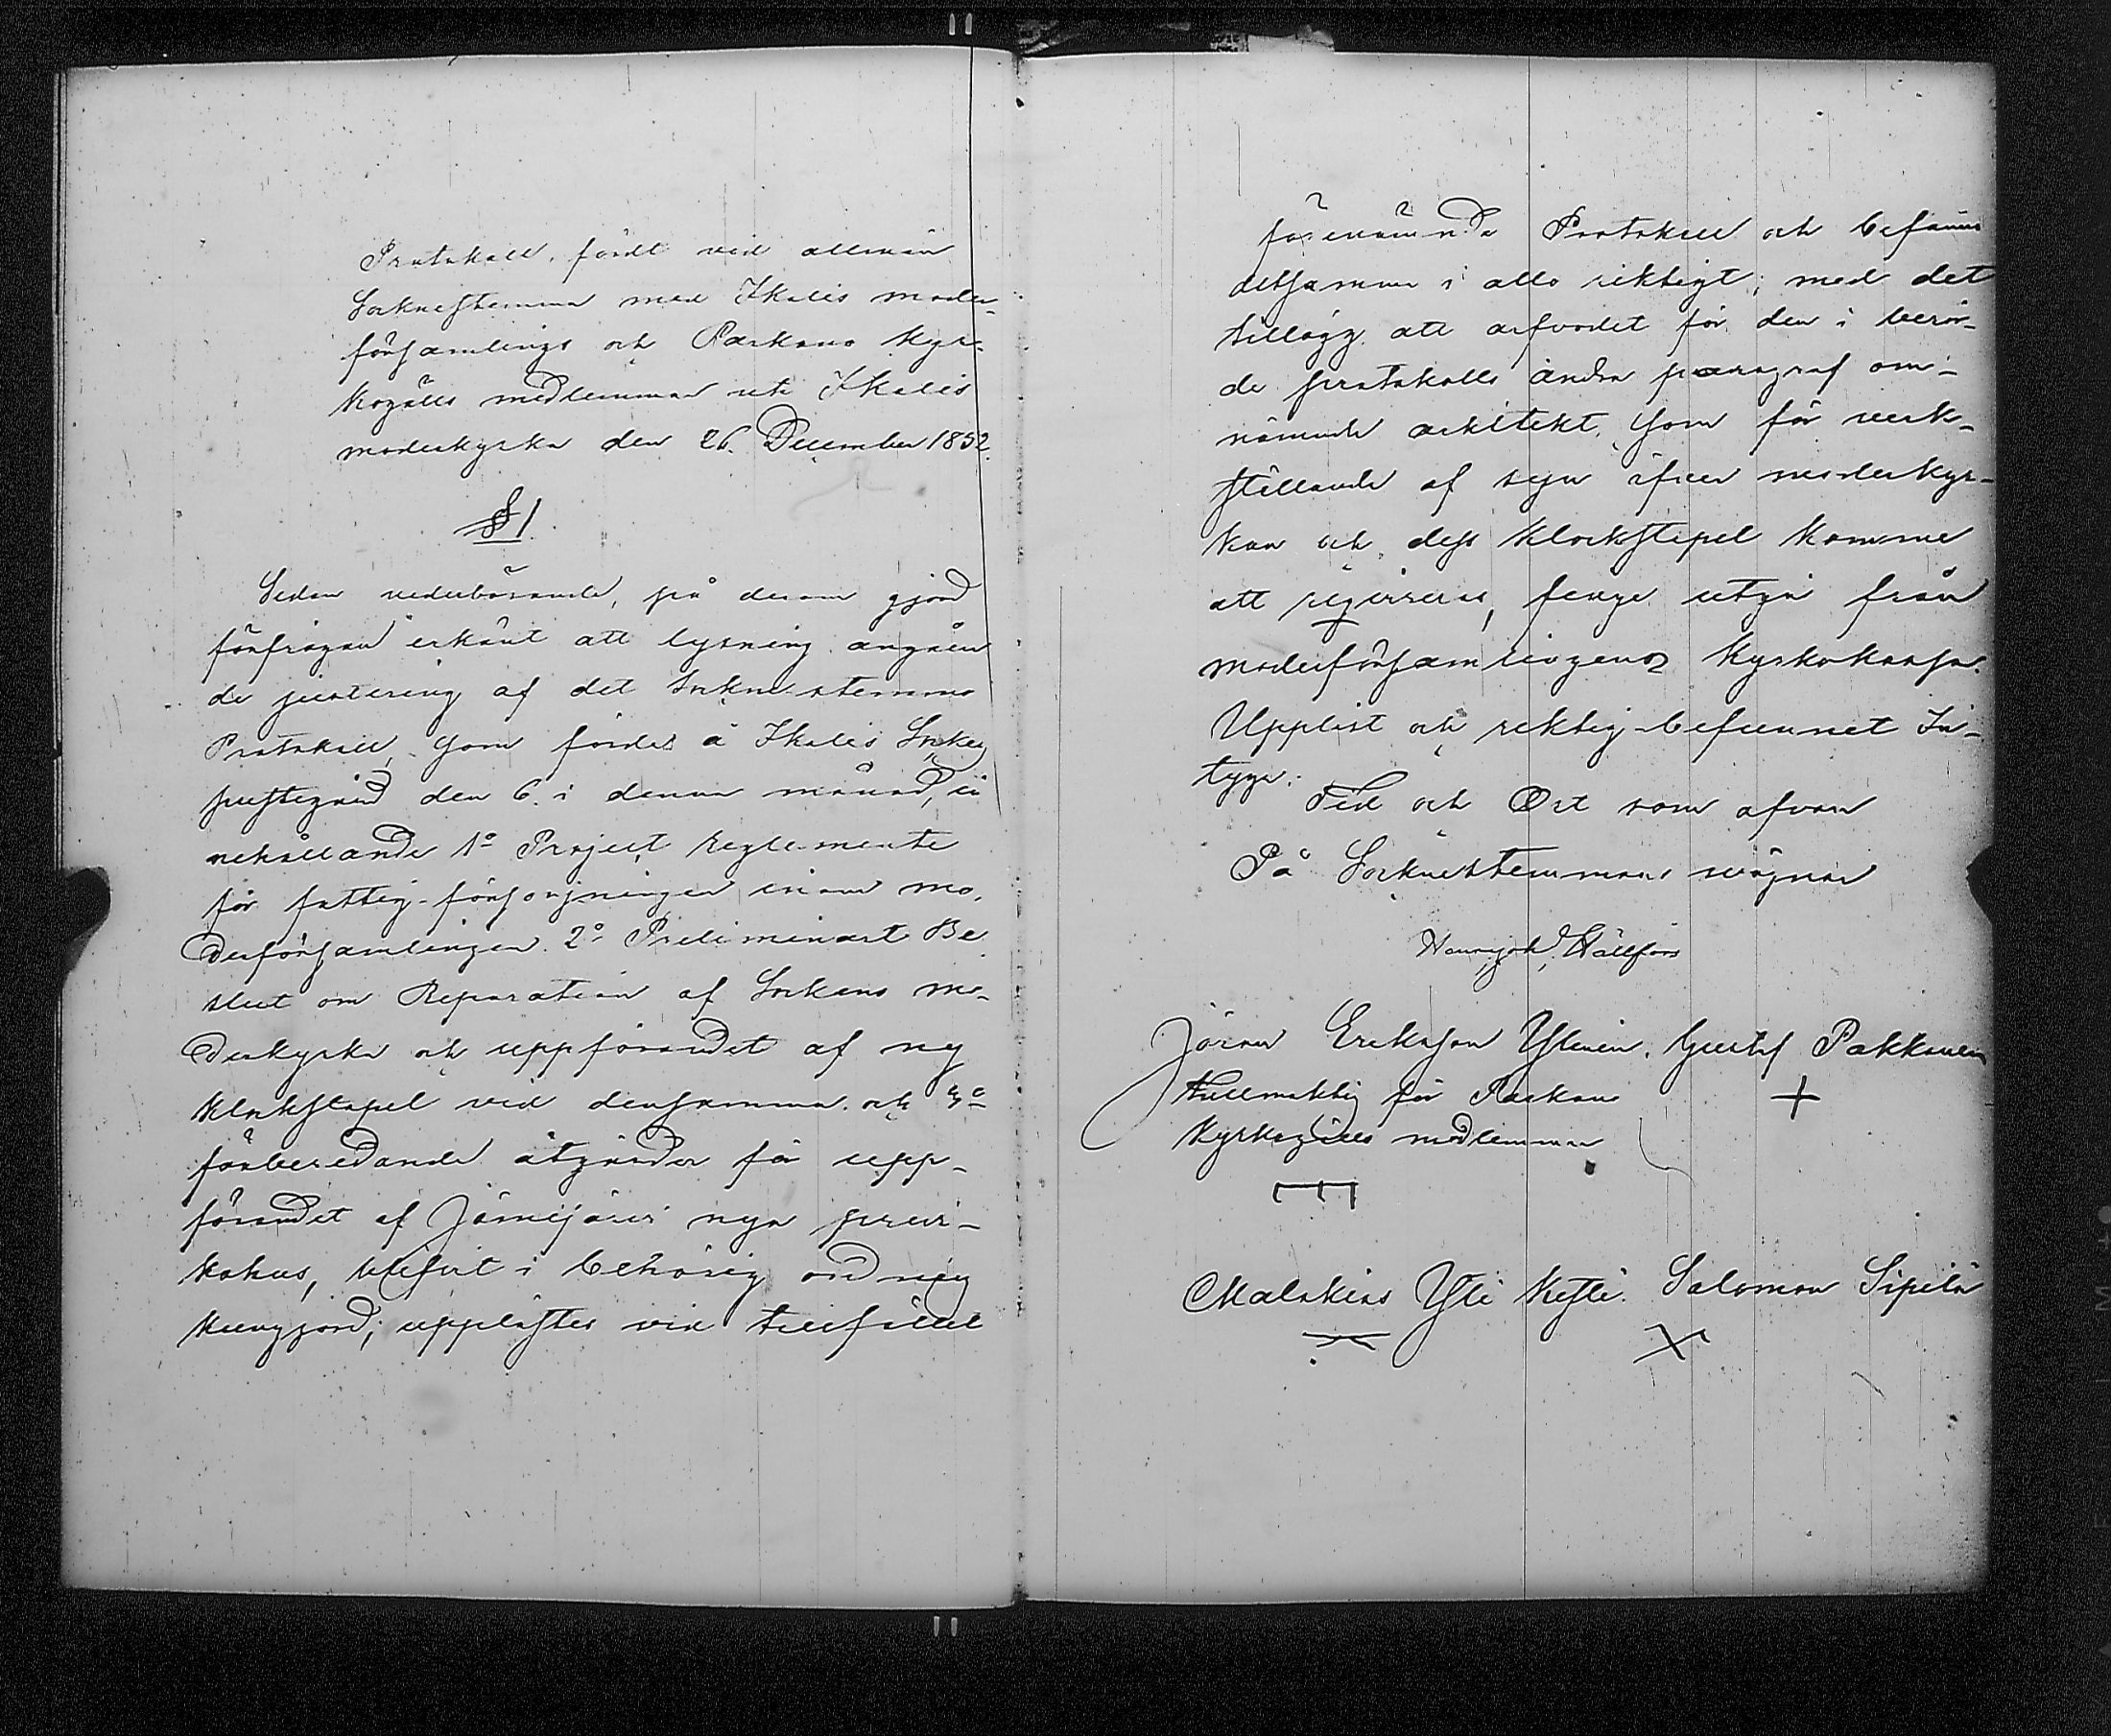 Protokoll, fördt vid allmän
Socknestemma med Ikalis moder-
församlings och Parkano kyr-
kogälls medlemmar uti Ikalis
moderkyrka den 26. December 1852.
§ 1.
Sedan vederbörande, på derom gjord
förfrågan erkänt att lysning angåen-
de justering af det Sockne-stemmo
Protokoll, som fördes å Ikalis Sockens
prestegård den 6. i denna månad, in
nehållande 1º Project reglemente
för fattig-försörjningen inom mo-
derförsamlingen. 2º Preliminärt Be
slut om Reparation af Sockens mo-
derkyrka och uppförandet af ny
klockstapel vid densamma. och 3º
förberedande åtgärder för upp-
förandet af Jämijärvi nya predi-
kohus, blifvit i behörig ordning
kungjord; upplästes vid tillfället
förenämnda Protokoll och befanns
detsamma i allo riktigt; med det
tillägg att arfvodet för den i berör-
de protokolls andra paragraf om-
nämnde arkitekt, som för verk-
ställande af syn öfver moderkyr-
kan och dess klockstapel komme
att reqvireras, finge utgå från
moderförsamlingens kyrkokassa.
Uppläst och riktig befunnet In-
tyga:
Tid och Ort som ofvan
På Socknestemmans wägnar
Henr. Joh. Hällfors
Jöran Eriksson Ylinen. Gustaf Pakkanen
Fullmäktig för Parkano
kyrkogälls medlemmar
Malakias Yli Kesti. Salomon Sipilä